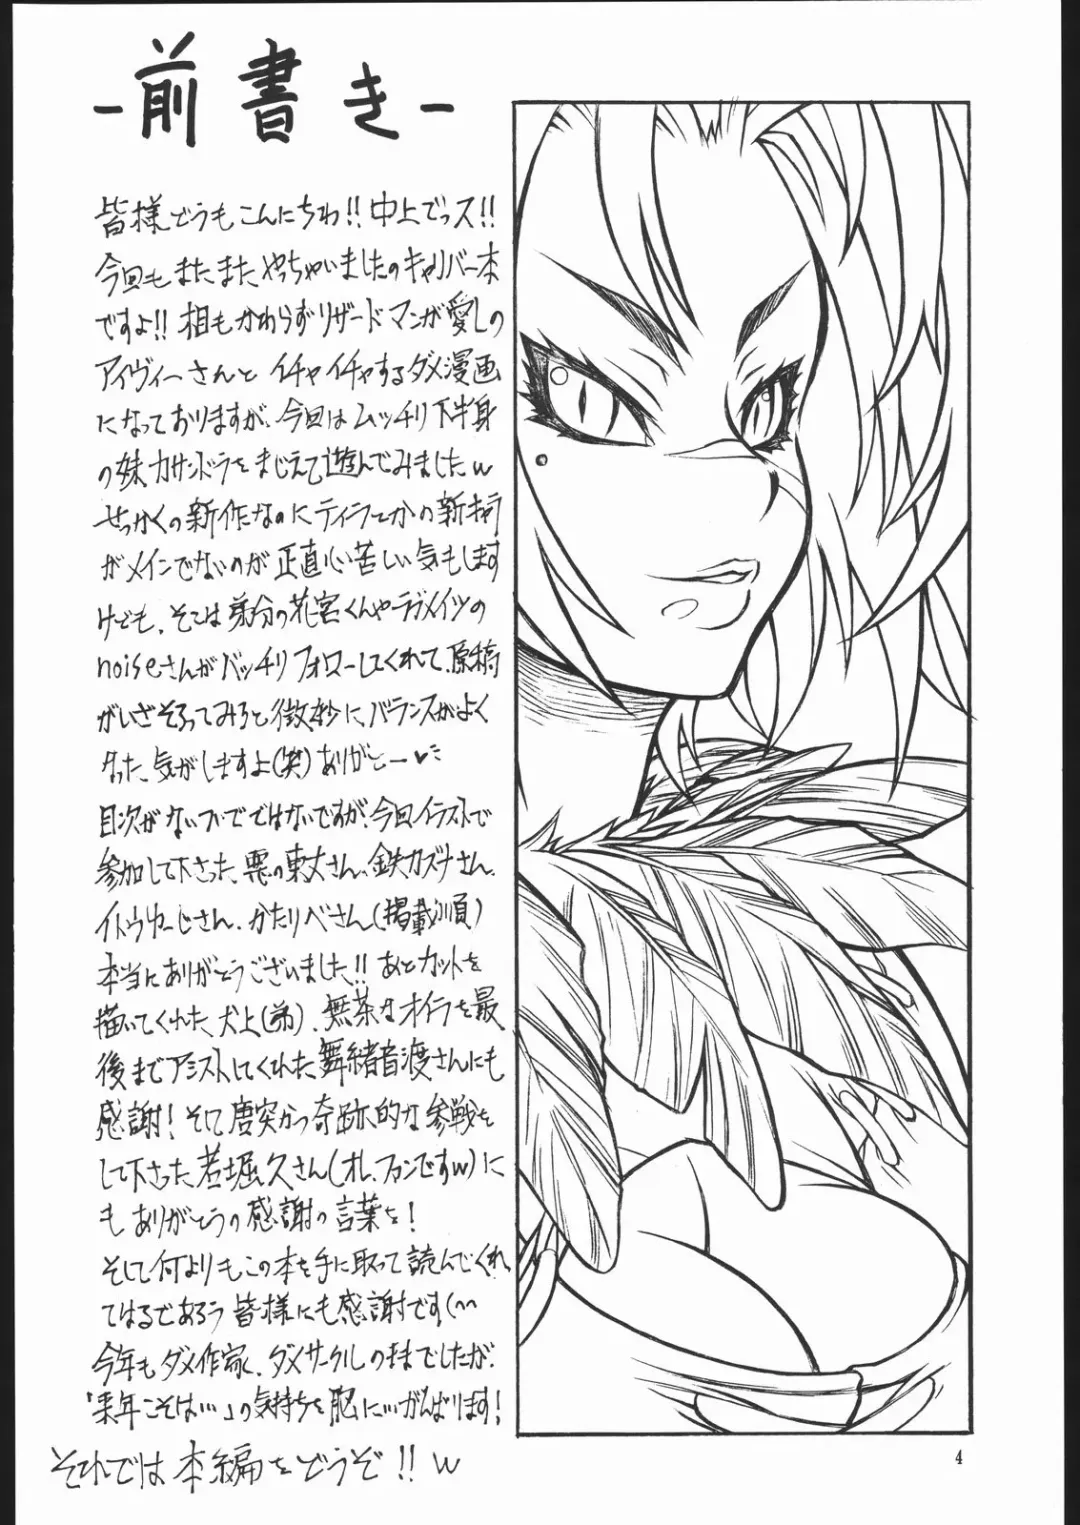 -前書き-
皆様どうもこんにちわ!!中上でっス!!
今回もまたまたやっちゃいましたのキャリバー本
ですよ!!相もかわらずリザードマンが愛しの
アイヴィーさんとイチャイチャするダメ漫画
になっておりますが、今回はムッチリ下半身
の妹カサンドラをまじえて遊んでみましたw
せっかくの新作なのにティラとかの新キャラ
がメインでないのが正直心苦しい気もします
けども、そこは弟分の花宮くんやラヴメイツの
noiseさんがバッチリフォローしてくれて、原稿
がいざそろってみると微妙に、バランスがよく
なった、気がしますよ(笑)ありがとー♥
目次がないついでではないですが、今回イラストで
参加して下さった、悪の東丈さん、鉄カズナさん、
イトウゆーじさん、かたりべさん(掲載順)
本当にありがとうございました!!あとカットを
描いてくれた、犬上(弟)、無茶なオイラを最
後までアシストしてくれた舞緒音渡さんにも
感謝!そして唐突かつ奇跡的な参戦を
して下さった若堀久さん(オレ、ファンですw)に
もありがとうの感謝の言葉を!
そして何よりもこの本を手に取って読んでくれ
てはるであろう皆様にも感謝です(^^
今年もダメ作家、ダメサークルのままでしたが、
「来年こそは…」の気持ちを胸に…がんばります!
それでは本編をどうぞ!!w
4